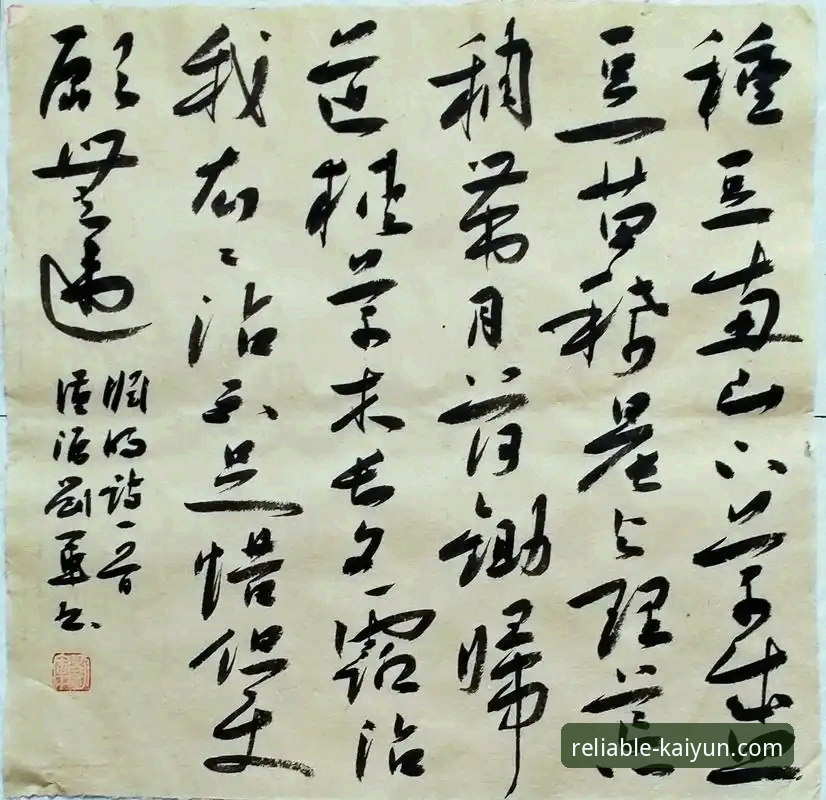 種豆南山下草盛
豆苗稀晨興理荒
穢帶月荷鋤歸
道狹草木長夕露沾
我衣々沾不足惜但使
願無違
淵明詩一首
劉軍書
reliable-kaiyun.com